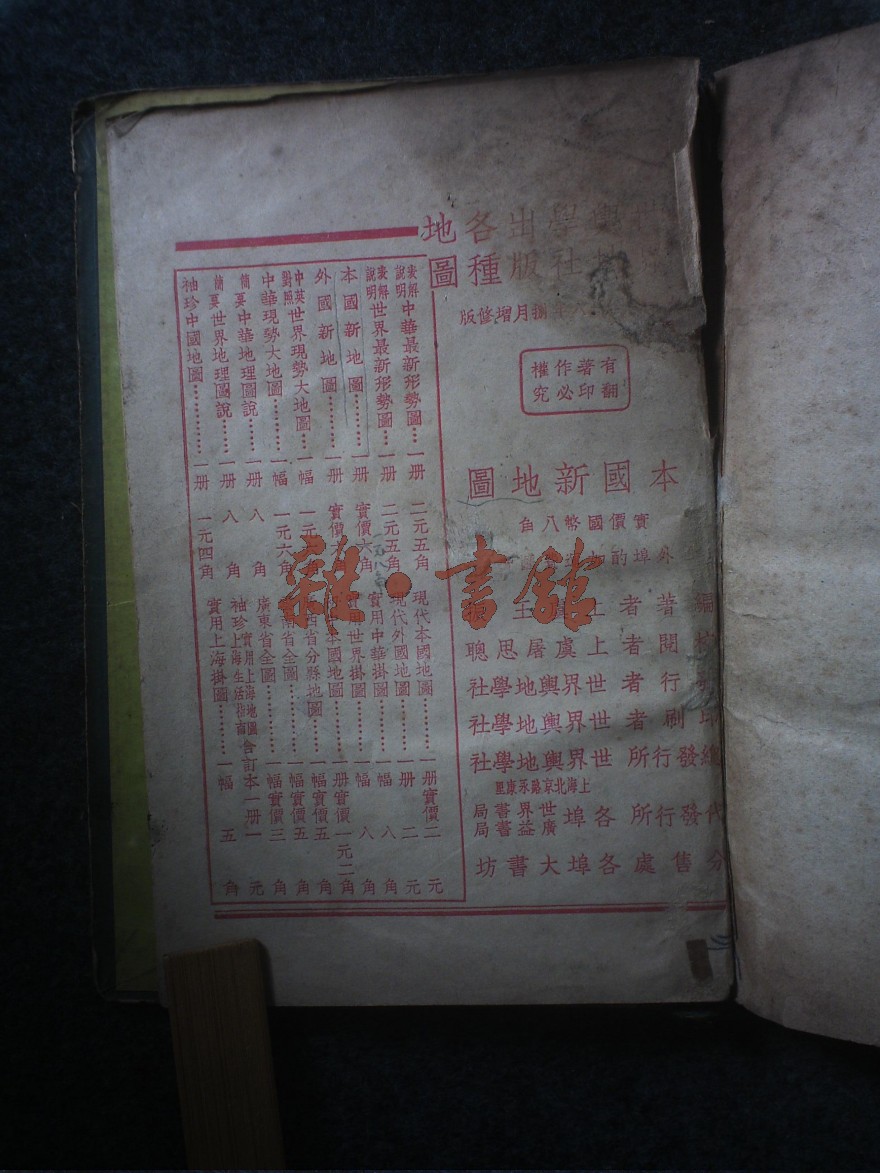 各出學輿
地
種版社
圖
捌月增修版
有著作權
翻印必究
本國新地圖
實價國幣八角
外埠酌加
著者上
閱者上虞屠思聰
行者世界輿地學社
印刷者世界輿地學社
總發行所世界輿地學社
上海北京路永康里
代發行所各埠世界書局
廣益書局
分售處各埠大書坊
表解說明中華最新形勢圖……一册 二元五角
表解說明世界最新形勢圖…一册 二元五角
本國新地圖……一册 實價六角
外國新地圖……一册 實價
中英對照世界現勢大地圖…一幅 一元
中華現勢大地圖……一幅 一元六角
簡要中華地理圖說……一册 八角
簡要世界地理圖說……一册 八角
袖珍中國地圖…………一册 一元四角
現代本國地圖…………一册 實價二元
現代外國地圖…………一册 二元
實用中華掛圖…………一幅 八角
世界掛圖…………一幅 八角
本國地圖…………一册 實價一元二角
西省分縣地圖……一幅 實價五角
南省全圖…………一幅 實價五角
廣東省全圖…………一幅 實價三角
袖珍實用上海地圖上海生活指南合訂本一册 一元
實用上海掛圖…………一幅 五角
雜·書館